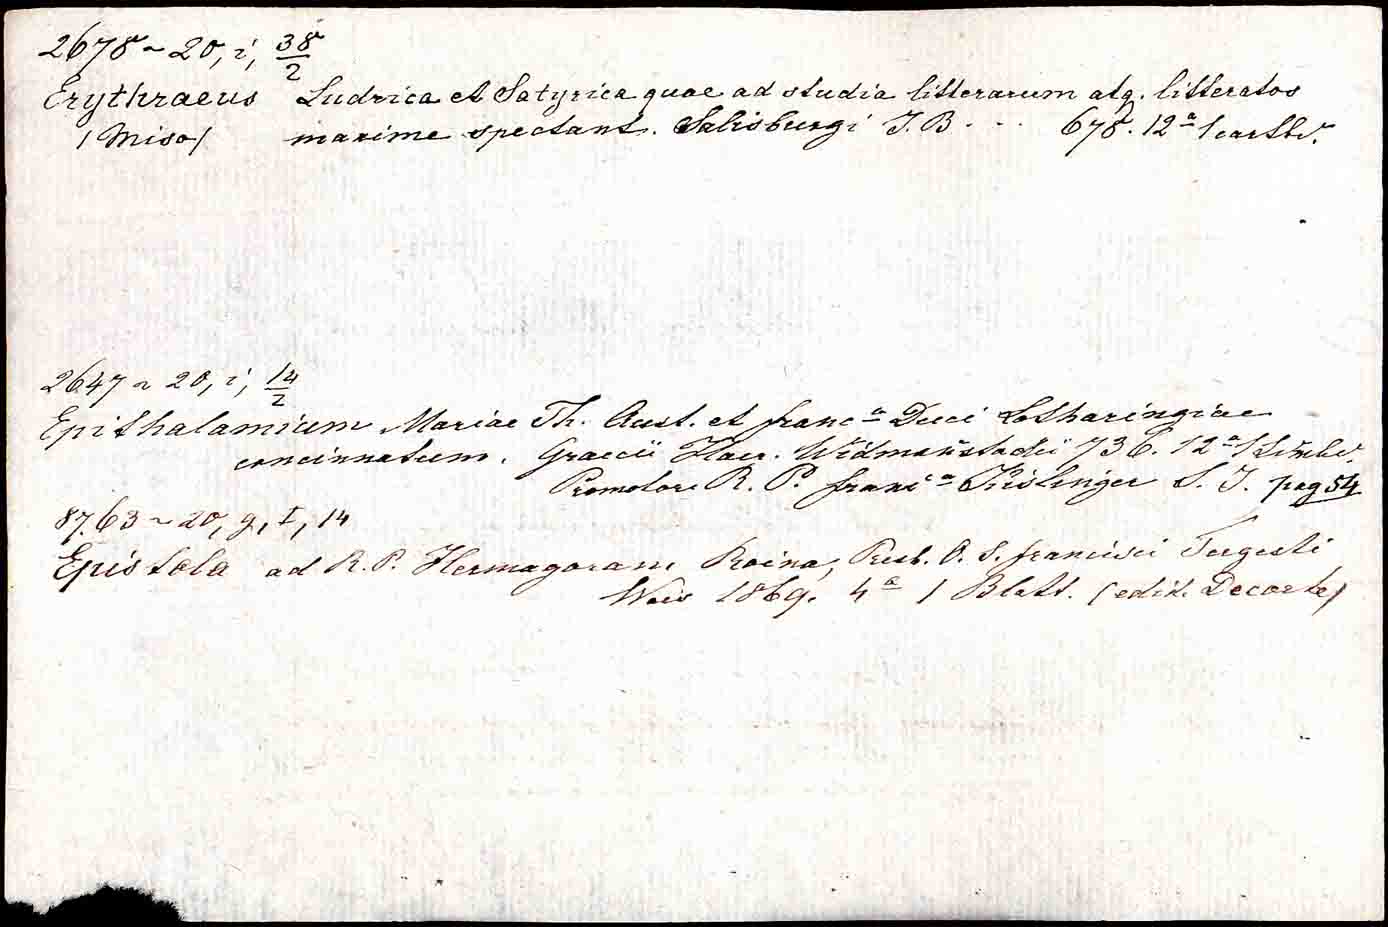 2678 ~ 20, i, 38/2
Erythraeus Ludrica et Satyrica quae ad studia litterarum atq. litteratos
/Miso/ maxime spectant. Salisburgi J. B - - - 678. 12ª /cartbd.
2647 ~ 20, i, 14/2
Epithalamium Mariae Th. Aust. et francª Duci Lotharingiae
concinnatum. Graecii Haer. Widmanstadii 736. 12ª
Promotore R. P. francª S. J. pag 54
8763 ~ 20, g, I, 14
Epistola ad R. P. Hermagoram Presb. O. S. francisci Tergesti
Weis 1869. 4ª 1 Blatt. (edit. Decorte)